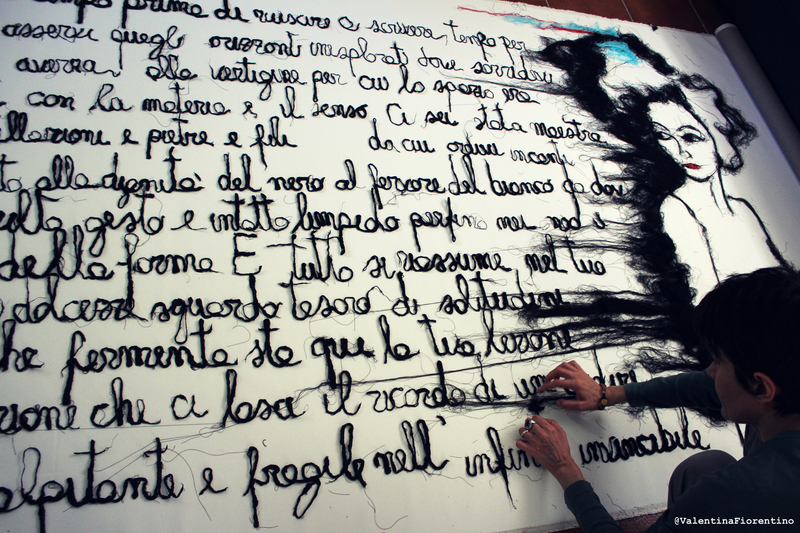 prima di riuscire a scrivere, tempo per
quegli orizzonti inesplorati dove sorridevi
alla vertigine per cui lo spazio era
con la materia e il senso. Ci sei stata maestra
e pietre e fili da cui ordisci incanti
alla dignità del nero al fervore del bianco da dove
gesto e intatto limpido perfino nei nodi
della forma E tutto si riassume nel tuo
sguardo tesoro di solitudini
che fermenta sta qui la tua lezione
che ci lasci il ricordo di
e fragile nell' infinito
@ValentinaFiorentino